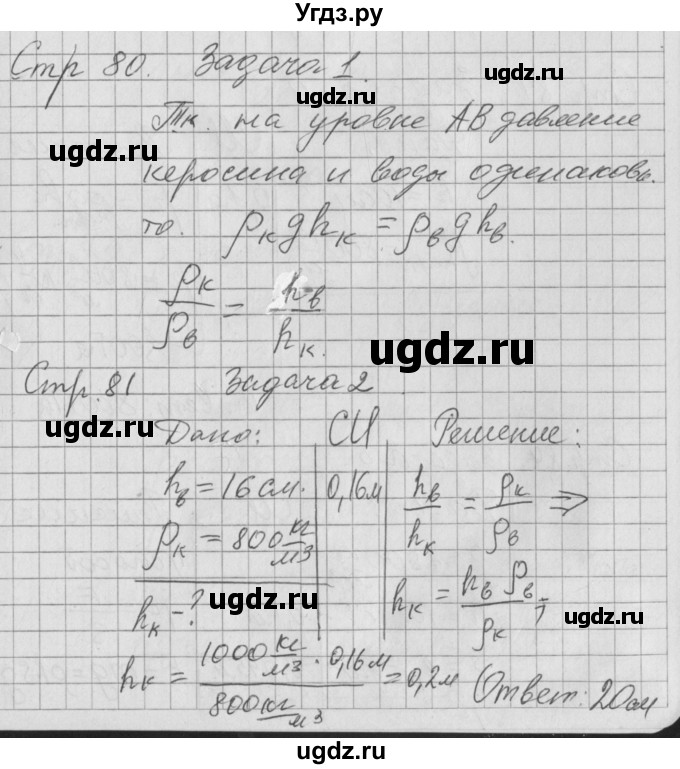 Угдз.ру
Стр 80. Задача 1.
ugdz.ru ugdz.ru
Тк. на уровне АВ давление
ugdz.ru
керосина и воды одинаковы.
то. ρкghк = ρвghв.
ρк/ρв = hв/hк.
ugdz.ru
Стр. 81 Задача 2
ugdz.ru
Дано: СИ Решение:
hв = 16 см. 0,16м hв/hк = ρк/ρв ⇒
ρк = 800 кг/м3
hк - ? hк = hв ρв/ρк;
ugdz.ru ugdz.ru
hк = 1000 кг/м3 · 0,16м / 800 кг/м3 = 0,2м Ответ: 20см
ugdz.ru
ugdz.ru